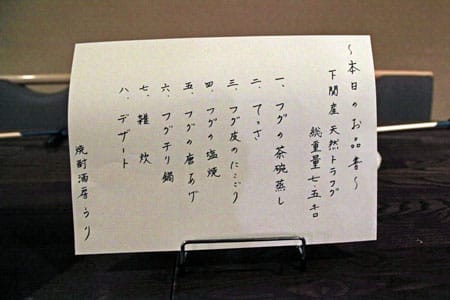 ～本日のお品書～
下関産 天然トラフグ
総重量七.五キロ
一、フグの茶碗蒸し
二、てっさ
三、フグ皮のにこごり
四、フグの塩焼
五、フグの唐あげ
六、フグチリ鍋
七、雑炊
八、デザート
焼酎酒房うり